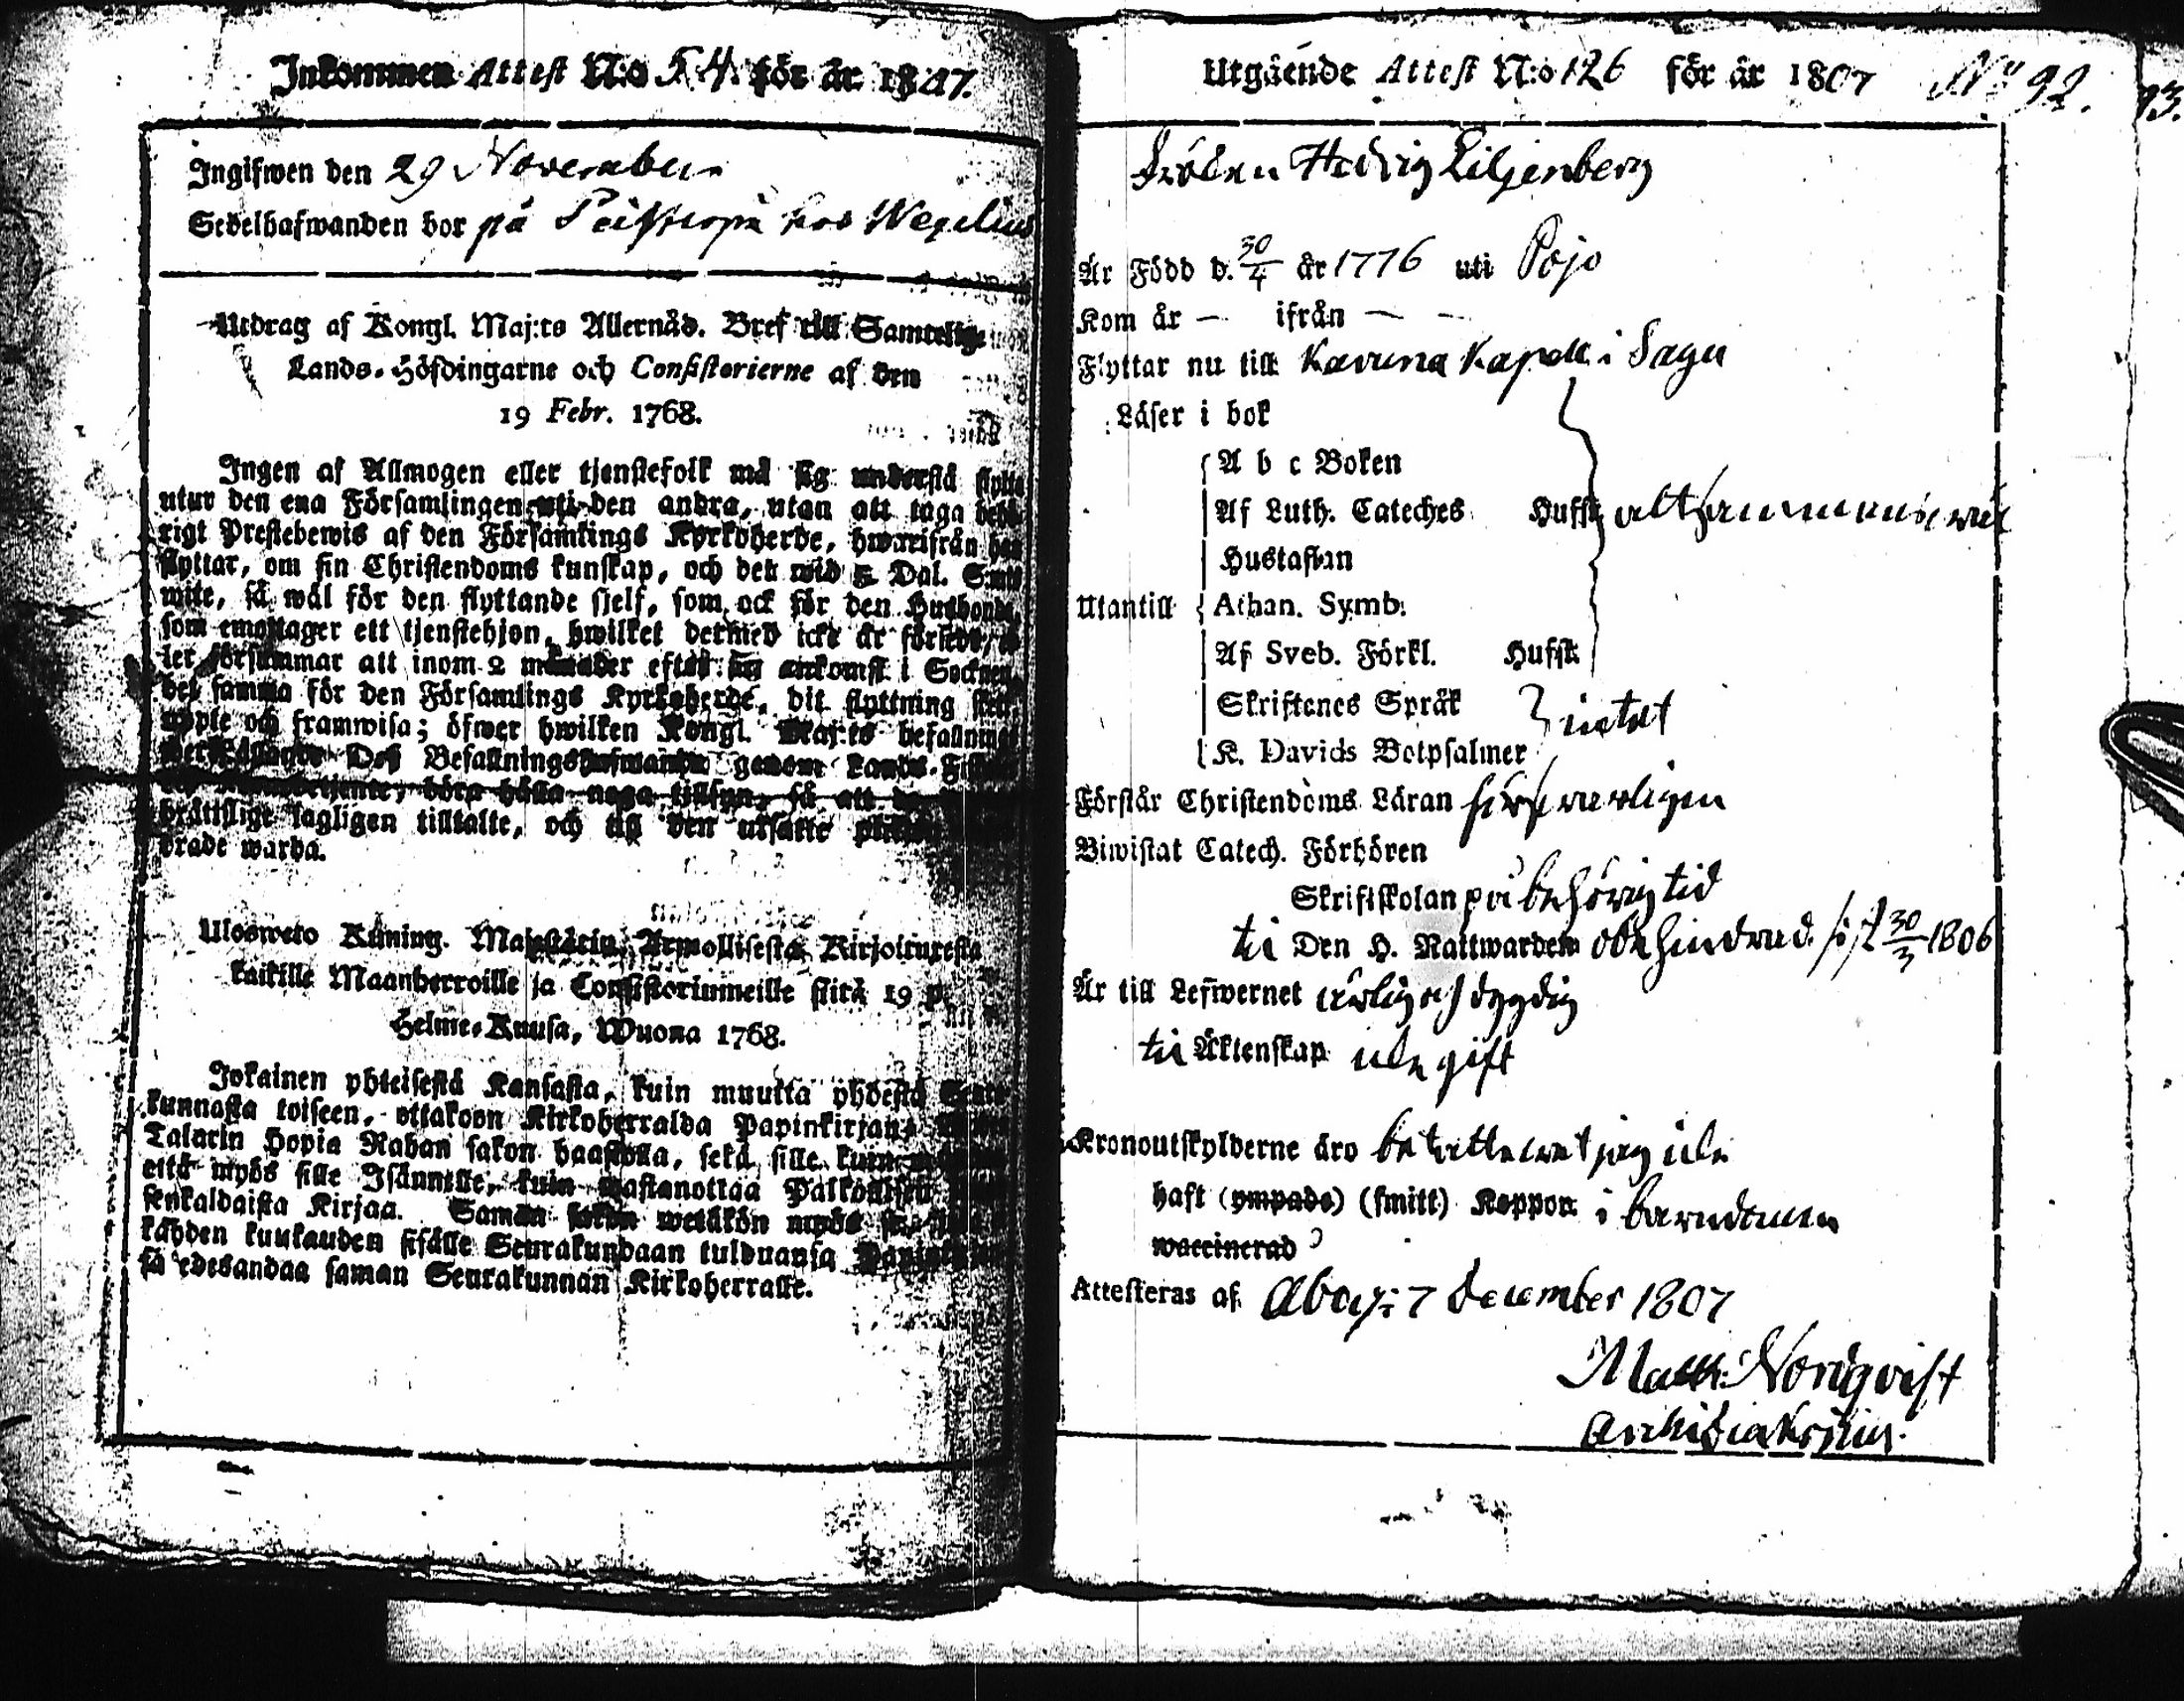 Inkommen Attest N:o 54. för år 1807.
Ingifwen den 29 November
Sedelhafwanden bor på hos Wegelius
Utdrag af Kongl. Maj:ts Allernåd. Bref till Samtelige
Lands-Höfdingarne och Consistorierne af den
19 Febr. 1768.
Ingen af Allmogen eller tjenstefolk må sig understå flytta
utur den ena Församlingen uti den andra, utan att taga behö-
rigt Prestebewis af den Församlings Kyrkoherde, hwarifrån han
flyttar, om sin Christendoms kunskap, och det wid 5 Dal. S:mts
wite, så wäl för den flyttande sjelf, som ock för den Husbonde,
som emottager ett tjenstehjon, hwilket dermed icke är försedt, el-
ler försummar att inom 2 månader efter sin ankomst i Socknen
det samma för den Församlings Kyrkoherde, dit flyttning sker,
upte och framwisa; öfwer hwilken Kongl. Maj:ts befallning
Des Befallningshafwande genom Lands-Fiskal
böra hålla noga tillsyn, så att de
brättslige lagligen tilltalte, och till den utsatte plikten
drade warda.
Ulosweto Kuning. Majestetin Armollisesta Kirjoituresta
kaikille Maanherroille ja Consistoriumeille siitä 19 p.
Helme-Kuusa, Wuona 1768.
Jokainen yhteisestä Kansasta, kuin muutta yhdestä Seura-
kunnasta toiseen, ottakoon Kirkoherralda Papinkirjan,
Talarin Hopia Rahan sakon haastolla, sekä sille kuin
että myös sille Isännille, kuin wastanottaa Palkollisen
senkaldaista Kirjaa. Saman sakon wetäkön myös se,
kahden kuukauden sisälle Seurakundaan tulduansa Papinkirjan-
sa edesandaa saman Seurakunnan Kirkoherralle.
Utgående Attest N:o 126 för år 1807 No 92.
93.
Fröken Hedvig Liljenberg
Är Född d. 30/4 år 1776 uti Pojo
Kom år — ifrån — —
Flyttar nu till Karuna Kapell i Sagu
Läser i bok
A b c Boken
Af Luth. Cateches Hufst. altsammans, wäl
Hustaflan
Utantill Athan. Symb.
Af Sveb. Förkl. Hufst.
Skriftenes Språk
intet
K. Davids Botpsalmer
Förstår Christendoms Läran försvarligen
Biwistat Catech. Förhören
Skriftskolan på behörig tid
till Den H. Nattwarden obehindrad. sist 30/3 1806
Är till Lefwernet ärlig och dygdig
till Äktenskap icke gift
Kronoutskylderne äro betalte wet jag icke
haft (ympade) (smitt) Koppor i barndomen
waccinerad
Attesteras af Åbo d: 7 December 1807
Matth: Nordqvist
Archidiakonus.